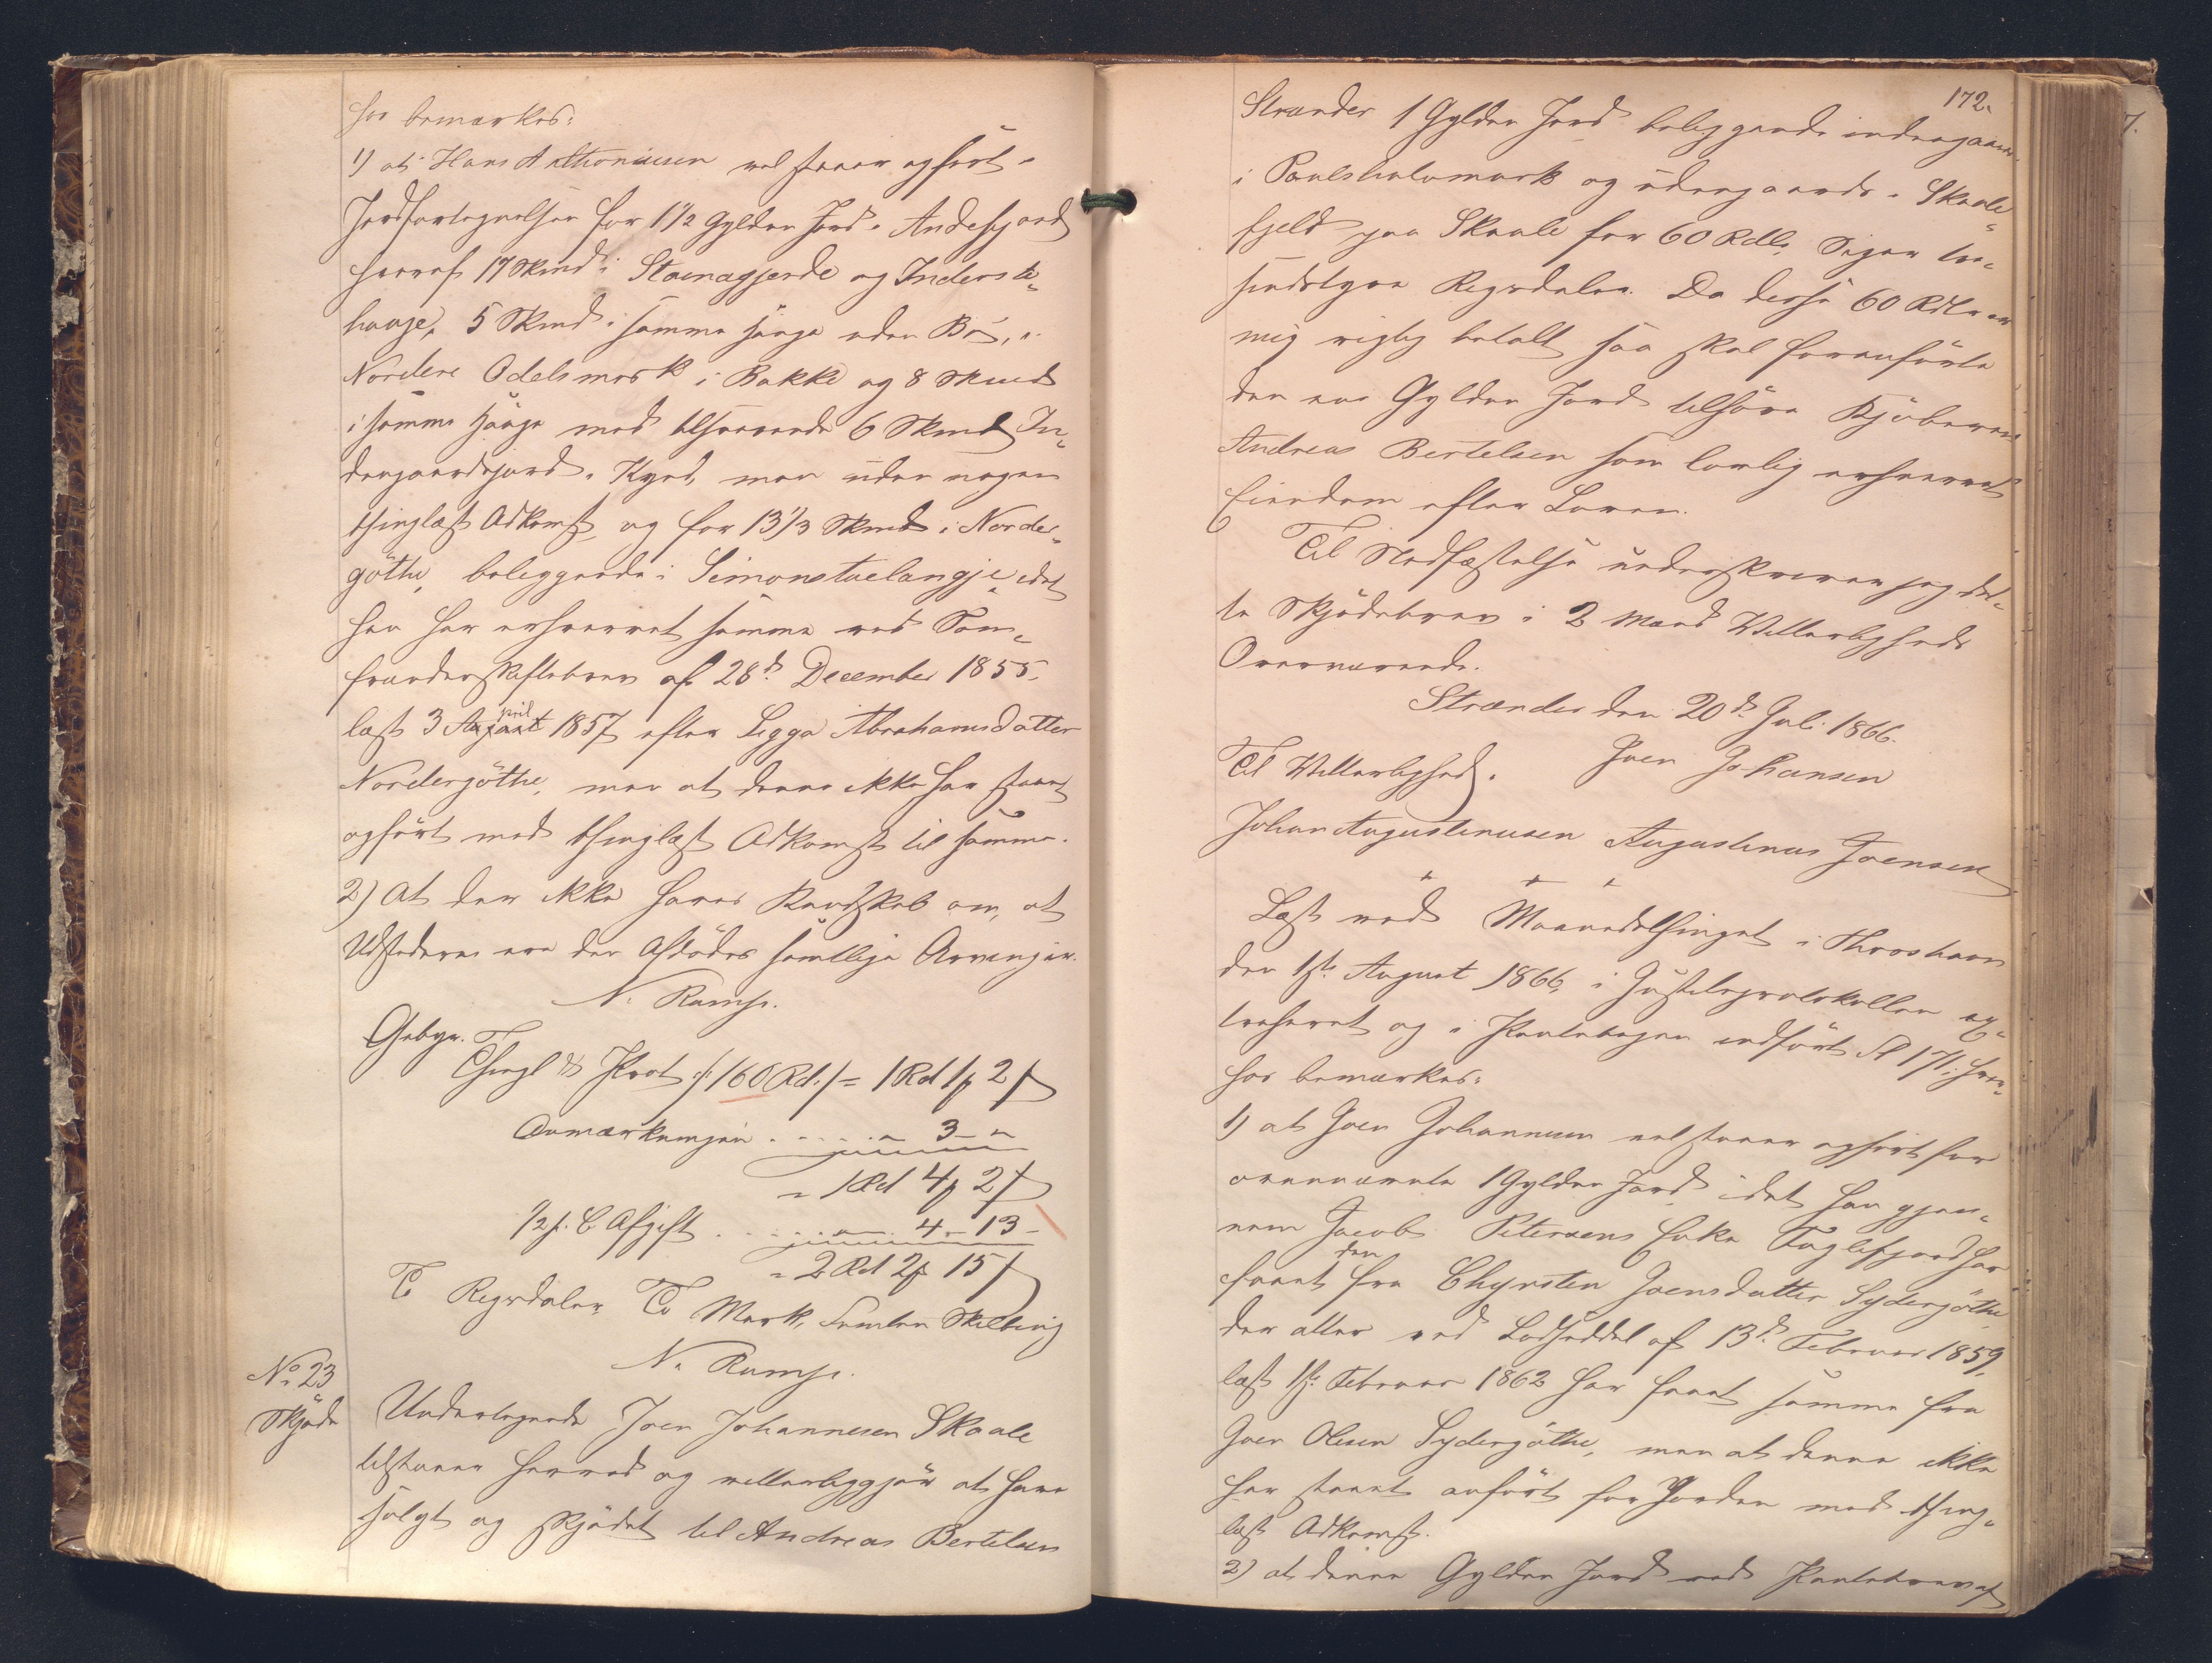 hos bemærkes:
1) at Hans Asthoniusen vel staaer opført i
Jordfortegnelsen for 1 1/2 Gylden Jord i Andefjord
heraf 17 Skind i Stoenagjerde og Inderste-
hauge, 5 Skind i samme Hauge uden Bø, i
Nordere Odelsmark i Bakke og 8 Skind
i samme Hauge med tilhørende 6 Skind In-
dengaardsjord i , men uden nogen
thinglæst Adkomst og for 13 1/3 Skind i Norder-
gøthe, beliggende i Simonstuelangje, idet
han har erhvervet samme ved Sam-
frænderskiftebrev af 28de December 1855,
læst 3 April 1857 efter Ligga Abrahamsdatter
Nordergøthe, men at denne ikke har staaet
opført med thinglæst Adkomst til samme.
2) At der ikke haves Kundskab om, at
Udstederne ere den Afdødes samtlige Arvinger.
N. Ramp.
Gebyr.
Thingl & Prot /: 160 Rd :/ = 1 Rd 1 ß 2 ß
Anmærkningen . . . . . 3 - "
= 1 Rd 4 ß 2 ß
1/2 p. C Afgift . . . . 4 - 13 -
= 2 Rd 2 ß 15 ß
To Rigsdaler To Mark, Femten Skilling
N. Ramp.
No. 23
Skjøde
Undertegnede Joen Johannesen Skaale
tilstaaer herved og vitterliggjør at have
solgt og skjødet til Andreas Bertelsen
172.
Strænder 1 Gylden Jord beliggende indengaards
i Poulshalvmark og udengaards i Skaale-
fjeld paa Skaale for 60 Rdlr. Siger tre-
sindstyve Rigsdaler. Da disse 60 Rdlr er
mig rigtig betalt saa skal foranførte
den ene Gylden Jord tilhøre Kjøberen
Andreas Bertelsen som lovlig erhvervet
Eiendom efter Loven.
Til Stadfæstelse underskriver jeg det-
te Skjødebrev i 2 Mænds Vitterligheds
Overværende.
Strænder den 20de Juli 1866.
Til Vitterlighed. Joen Johansen
Johan Augustinusen Augustinus Joensen
Læst ved Maanedsthinget i Thorshavn
den 1ste August 1866, i Justitsprotokollen ex-
traheret og i Pantebogen indført Fl 171; hvor-
hos bemærkes:
1) at Joen Johannesen vel staaer opført for
ovennævnte 1 Gylden Jord idet han gjen-
nem Jacob Petersens Enke Fuglefjord har
faaet den fra Chyrsten Joensdatter Sydergøthe,
der atter ved Lodseddel af 13de Februar 1859,
læst 1ste Februar 1862 har faaet samme fra
Joen Olesen Sydergøthe, men at denne ikke
har staaet anført for Jorden med thing-
læst Adkomst.
2) at denne Gylden Jord ved Pantebrev af